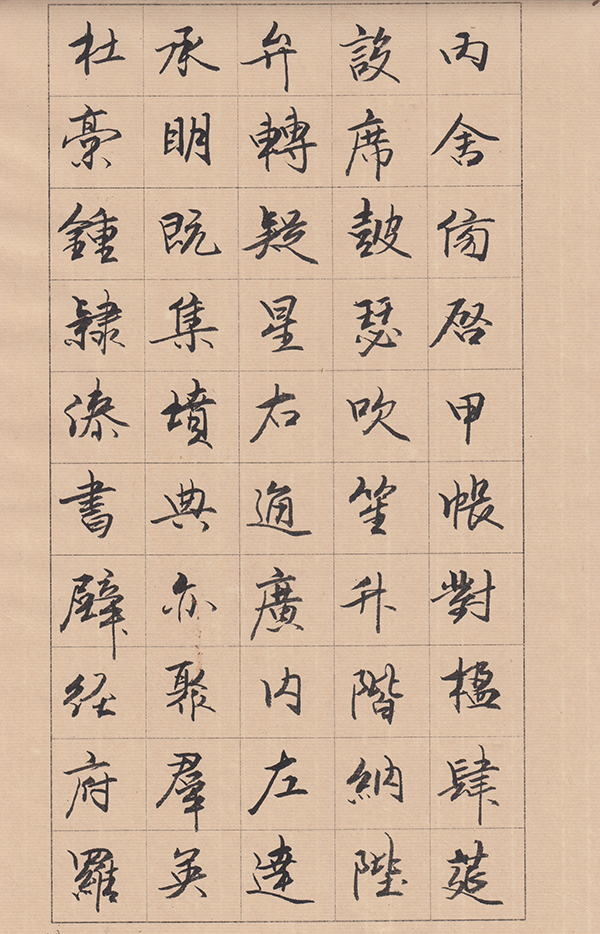 丙舍傍啓甲帳對楹肆筵
設席鼓瑟吹笙升階納陛
弁轉疑星右通廣内左達
承明既集墳典亦聚群英
杜稾鍾隸漆書壁経府羅